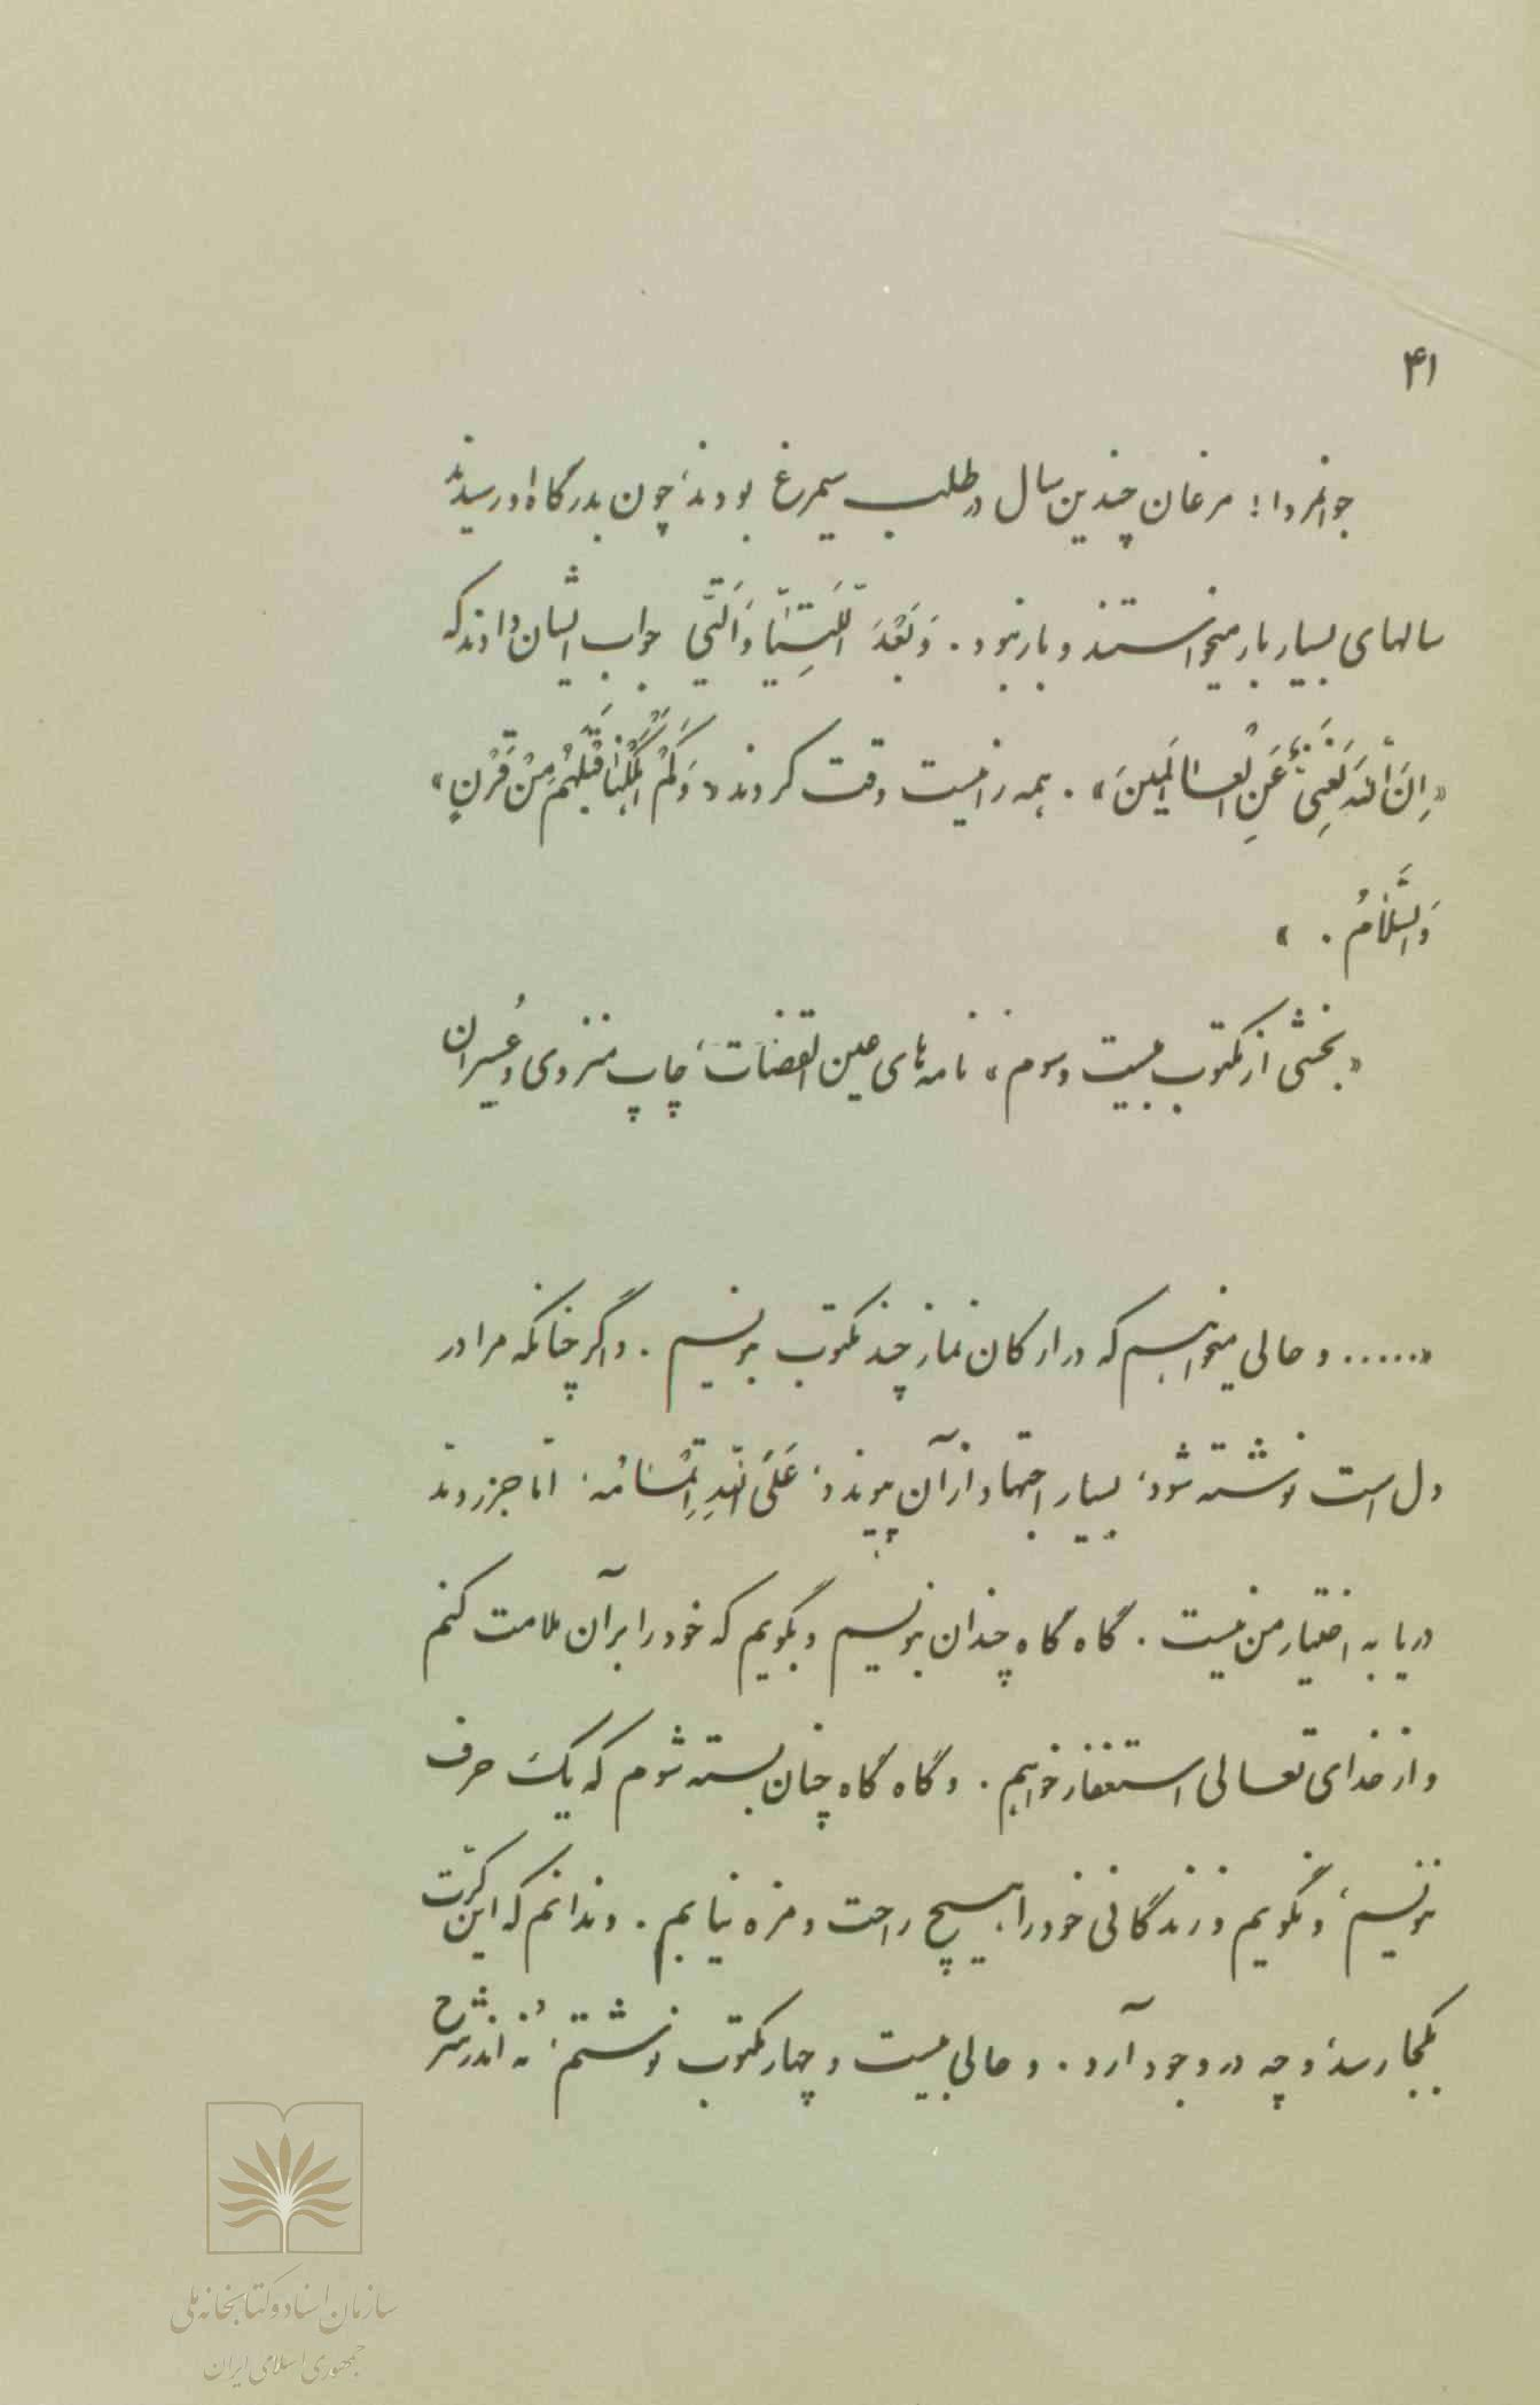 ۴۱
جوانمردا! مرغان چندین سال در طلب سیمرغ بودند، چون بدرگاه او رسیدند
سالهای بسیار بار میخواستند و بار نبود. وَ بَعْدَ اللَّتَیّا وَ الَّتی جواب ایشان دادند که
«اِنَّ اللهَ لَغَنِیٌّ عَنِ الْعالَمینَ». همه را نیست وقت کردند «وَ کَمْ اَهْلَکْنا قَبْلَهُمْ مِنْ قَرْنٍ»
وَ السَّلامُ. »
«بخشی از مکتوب بیست و سوم، نامه‌های عین القضات، چاپ منزوی و عُسیران
«..... و حالی میخواهم که در ارکان نماز چند مکتوب بنویسم. و اگر چنانکه مرا در
دل است نوشته شود، بسیار اجتهاد از آن پیوندد، عَلَی اللهِ اِتْمامُه، امّا جزر و مد
دریا به اختیار من نیست. گاه گاه چندان بنویسم و بگویم که خود را بر آن ملامت کنم
و از خدای تعالی استغفار خواهم. و گاه گاه چنان بسته شوم که یک حرف
ننویسم، و نگویم و زندگانی خود را هیچ راحت و مزه نیابم. و ندانم که این کرّت
بکجا رسد و چه در وجود آرد. و حالی بیست و چهار مکتوب نوشتم، نه اندر شرح
سازمان اسناد و کتابخانه ملی
جمهوری اسلامی ایران